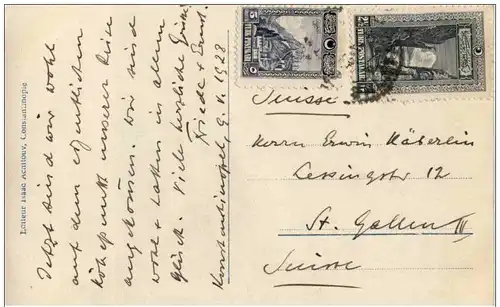 Jetzt sind wir wohl
auf dem eigentlichen
Höhepunkt unserer Reise
angekommen. Wir sind
wohl & haben in allem
Glück. Viele herzliche Grüsse
Friedel & Ernst.
Konstantinopel, 9. V. 1928
Editeur Isaac, Constantinople
5
Suisse
Herrn Erwin Häberlin
Lessingstr 12
St. Gallen III
Suisse